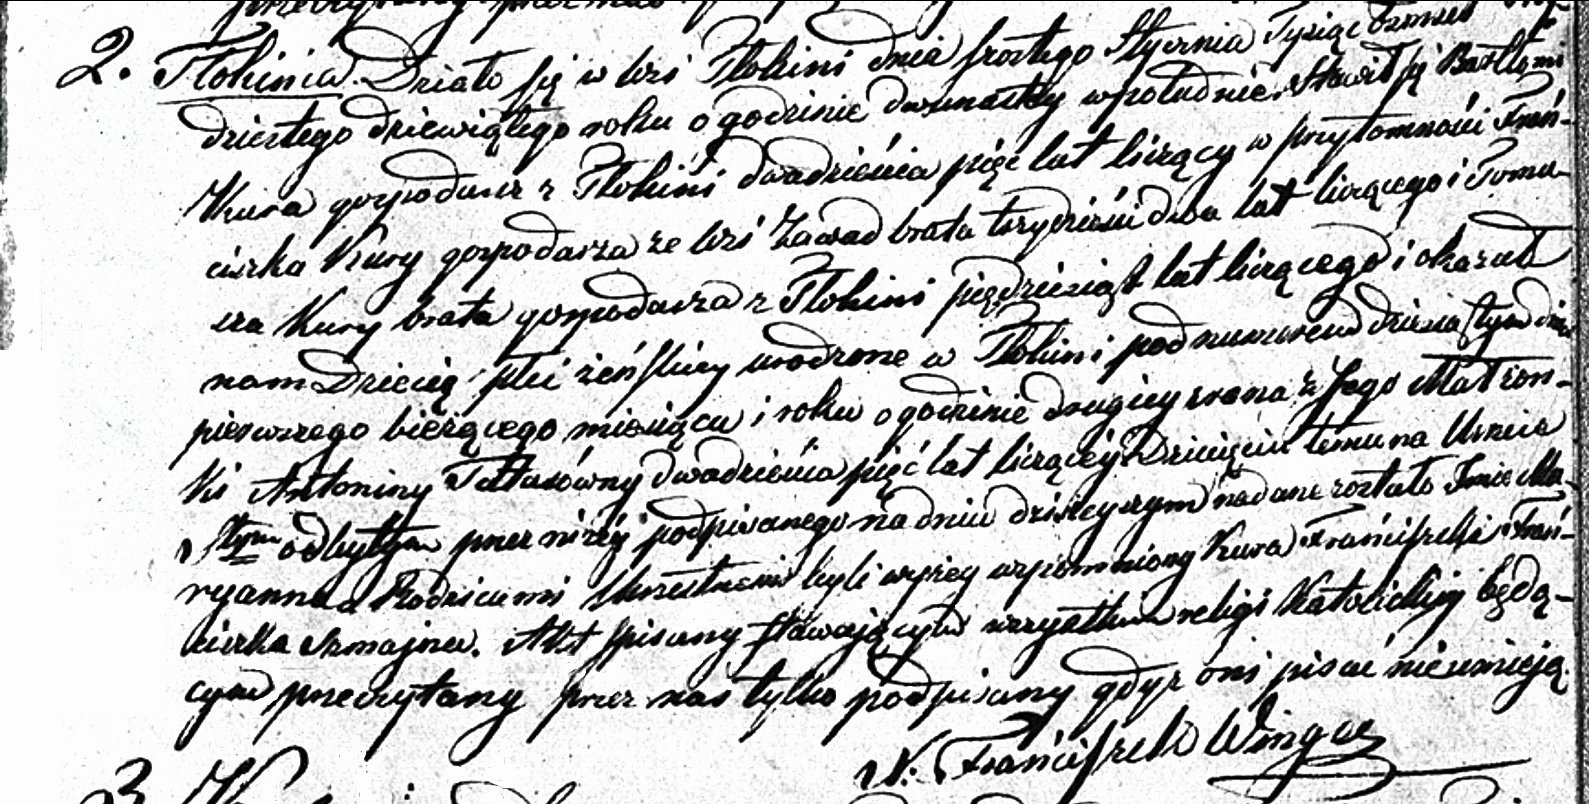 2. Tłokinia. Działo się w wsi Tłokini dnia szóstego Stycznia Tysiąc Ośmset
dziestego dziewiątego roku o godzinie dwunastey wpołudnie. Stawił się Bartłomi
Kura gospodarz z Tłokini dwadzieścia pięć lat liczący w przytomności Fran-
ciszka Kury gospodarza ze wsi Zawad brata trzydzieści dwa lat liczącego i Toma-
sza Kury brata gospodarza z Tłokini pięćdziesiąt lat liczącego i okazał
nam Dziecię płci żeńskiey urodzone w Tłokini pod numerem dziesiątym dnia
pierwszego bieżącego miesiąca i roku o godzinie drugiey zrana z Jego Małżon-
ki Antoniny dwadzieścia pięć lat liczącey. Dziecięciu temu na Chrzcie
Stym odbytym przez niżey podpisanego na dniu dzisieyszym nadane zostało Imie Ma-
ryanna a Rodzicami Chrzestnemi byli wyżey wspomniony Kura Franciszek i Fran-
ciszka Szmajna. Akt spisany stawającym wszystkim religi Katolickiey będą-
cym przeczytany przez nas tylko podpisany gdyż oni pisać nieumieją.
X. Franciszek
3.